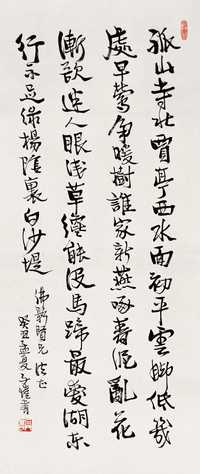 孤山寺北賈亭西水面初平雲脚低幾
處早鶯争暖樹誰家新燕啄春泥亂花
漸欲迷人眼淺草纔能沒馬蹄最愛湖东
行不足綠楊陰裏白沙堤
兄法正
癸丑孟夏